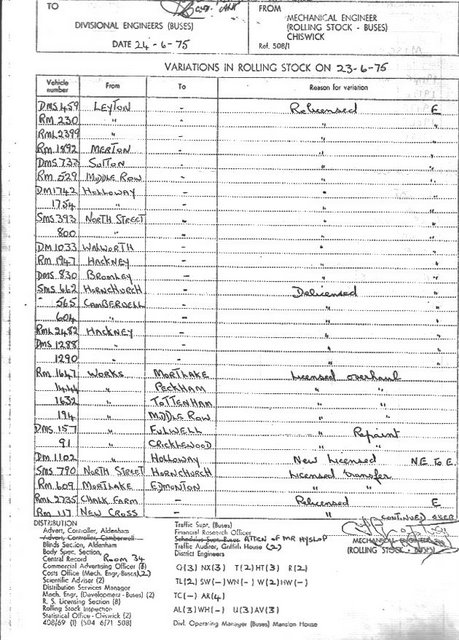 TO
DIVISIONAL ENGINEERS (BUSES)
DATE 24-6-75
FROM
MECHANICAL ENGINEER
(ROLLING STOCK - BUSES)
CHISWICK
Ref. 508/1
VARIATIONS IN ROLLING STOCK ON 23-6-75
Vehicle number From To Reason for variation
DMS 459 LEYTON - Relicensed E
RM 230 " - " "
RML 2399 " - " "
RM 1892 MERTON - " "
DMS 733 SUTTON - " "
RM 529 MIDDLE ROW - " "
DM 1742 HOLLOWAY - " "
1754 " - " "
SMS 393 NORTH STREET - " "
800 " - " "
DM 1033 WALWORTH - " "
RM 1947 HACKNEY - " "
DMS 830 BROMLEY - " "
SMS 662 HORNCHURCH - Delicensed "
" 565 CAMBERWELL - " "
604 " - " "
RML 2482 HACKNEY - " "
DMS 1288 " - " "
1290 " - " "
RM 1647 WORKS MORTLAKE Licensed overhaul
" PECKHAM " "
1632 " TOTTENHAM " "
194 " MIDDLE ROW " "
DMS 157 " FULWELL " Repaint
91 " CRICKLEWOOD " "
DM 1102 " HOLLOWAY New Licensed N.E TO E.
SMS 790 NORTH STREET HORNCHURCH Licensed transfer
RM 609 MORTLAKE EDMONTON " "
RML 2735 CHALK FARM - Relicensed E
RM 117 NEW CROSS - " "
CONTINUED OVER
MECHANICAL ENGINEER
(ROLLING STOCK - BUSES)
DISTRIBUTION
Advert. Controller, Aldenham
Advert. Controller, Camberwell
Blinds Section, Aldenham
Body Spec. Section,
Central Record Room 34
Commercial Advertising Officer (8)
Costs Office (Mech. Engr-Buses)(2)
Scientific Adviser (2)
Distribution Services Manager
Mech. Engr. (Development - Buses) (2)
R. S. Licensing Section (8)
Rolling Stock Inspection
Statistical Office - Chiswick (2)
408/69 (1) (504 6/71 508)
Traffic Supt. (Buses)
Financial Research Officer
Schedules Supt. Buses ATTEN OF MR HYSLOP
Traffic Auditor, Griffith House (2)
District Engineers
Q(3) NX(3) T(2) HT(3) R(2)
TL(2) SW(-) WN(-) W(2) HW(-)
TC(-) AR(4)
AL(3) WH(-) U(3) AV(3)
Divl. Operating Manager (Buses) Mansion House